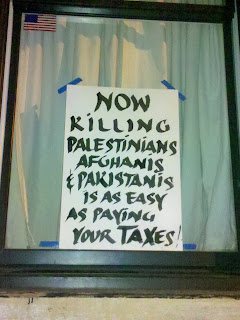 NOW
KILLING
PALESTINIANS
AFGHANIS
& PAKISTANIS
IS AS EASY
AS PAYING
YOUR TAXES!